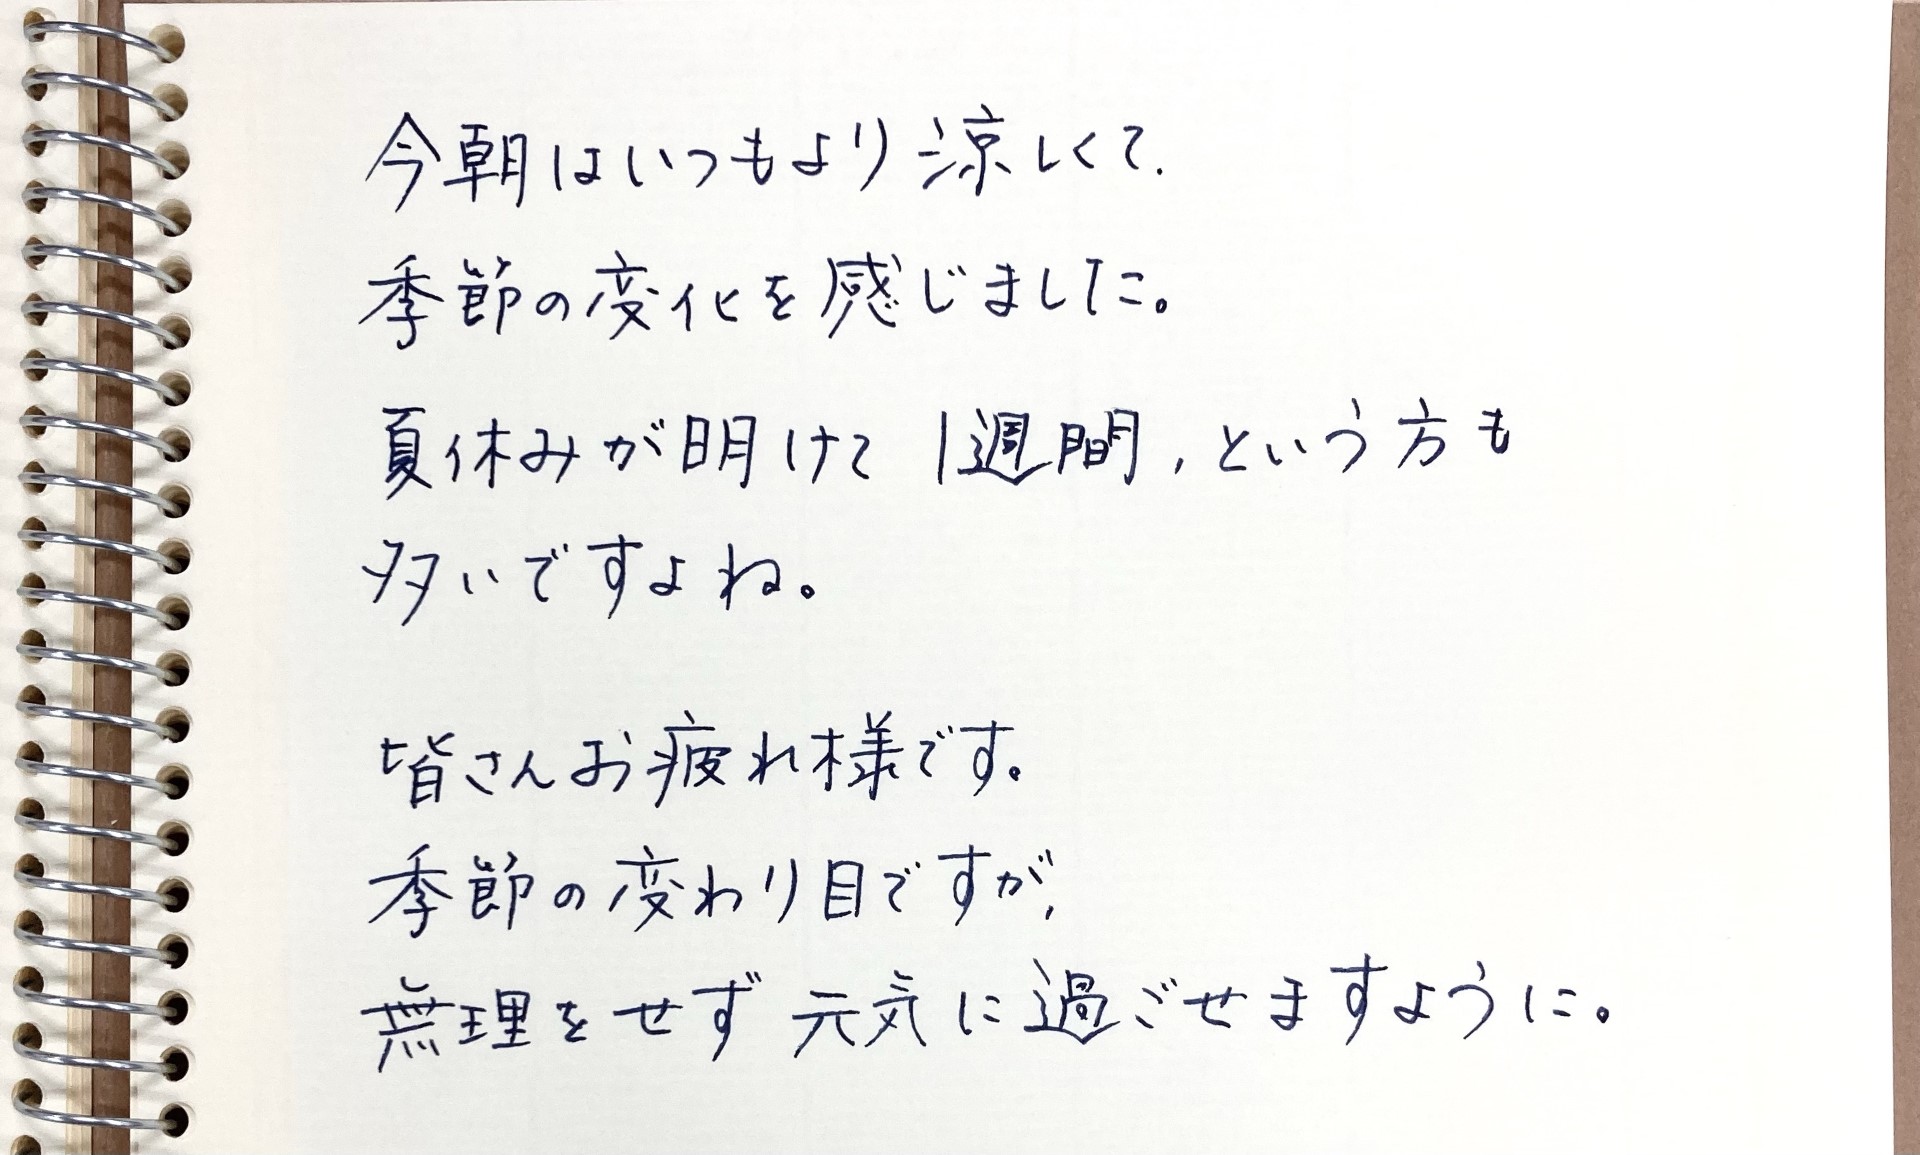 今朝はいつもより涼しくて、
季節の変化を感じました。
夏休みが明けて1週間、という方も
多いですよね。
皆さんお疲れ様です。
季節の変わり目ですが、
無理をせず元気に過ごせますように。